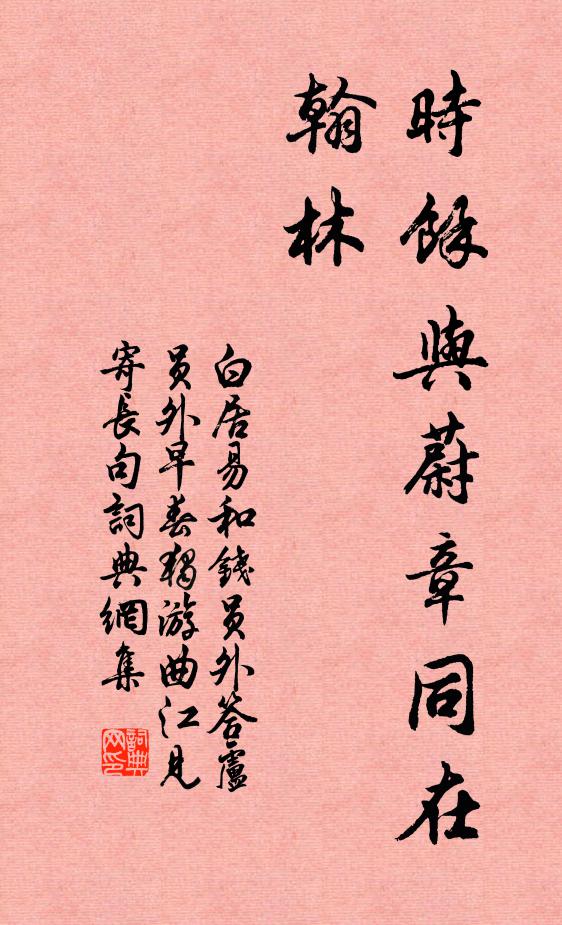 時餘與蔚章同在
翰林
白居易和錢员外答盧
员外早春獨游曲江見
寄長句詞典網集
詞典
网印